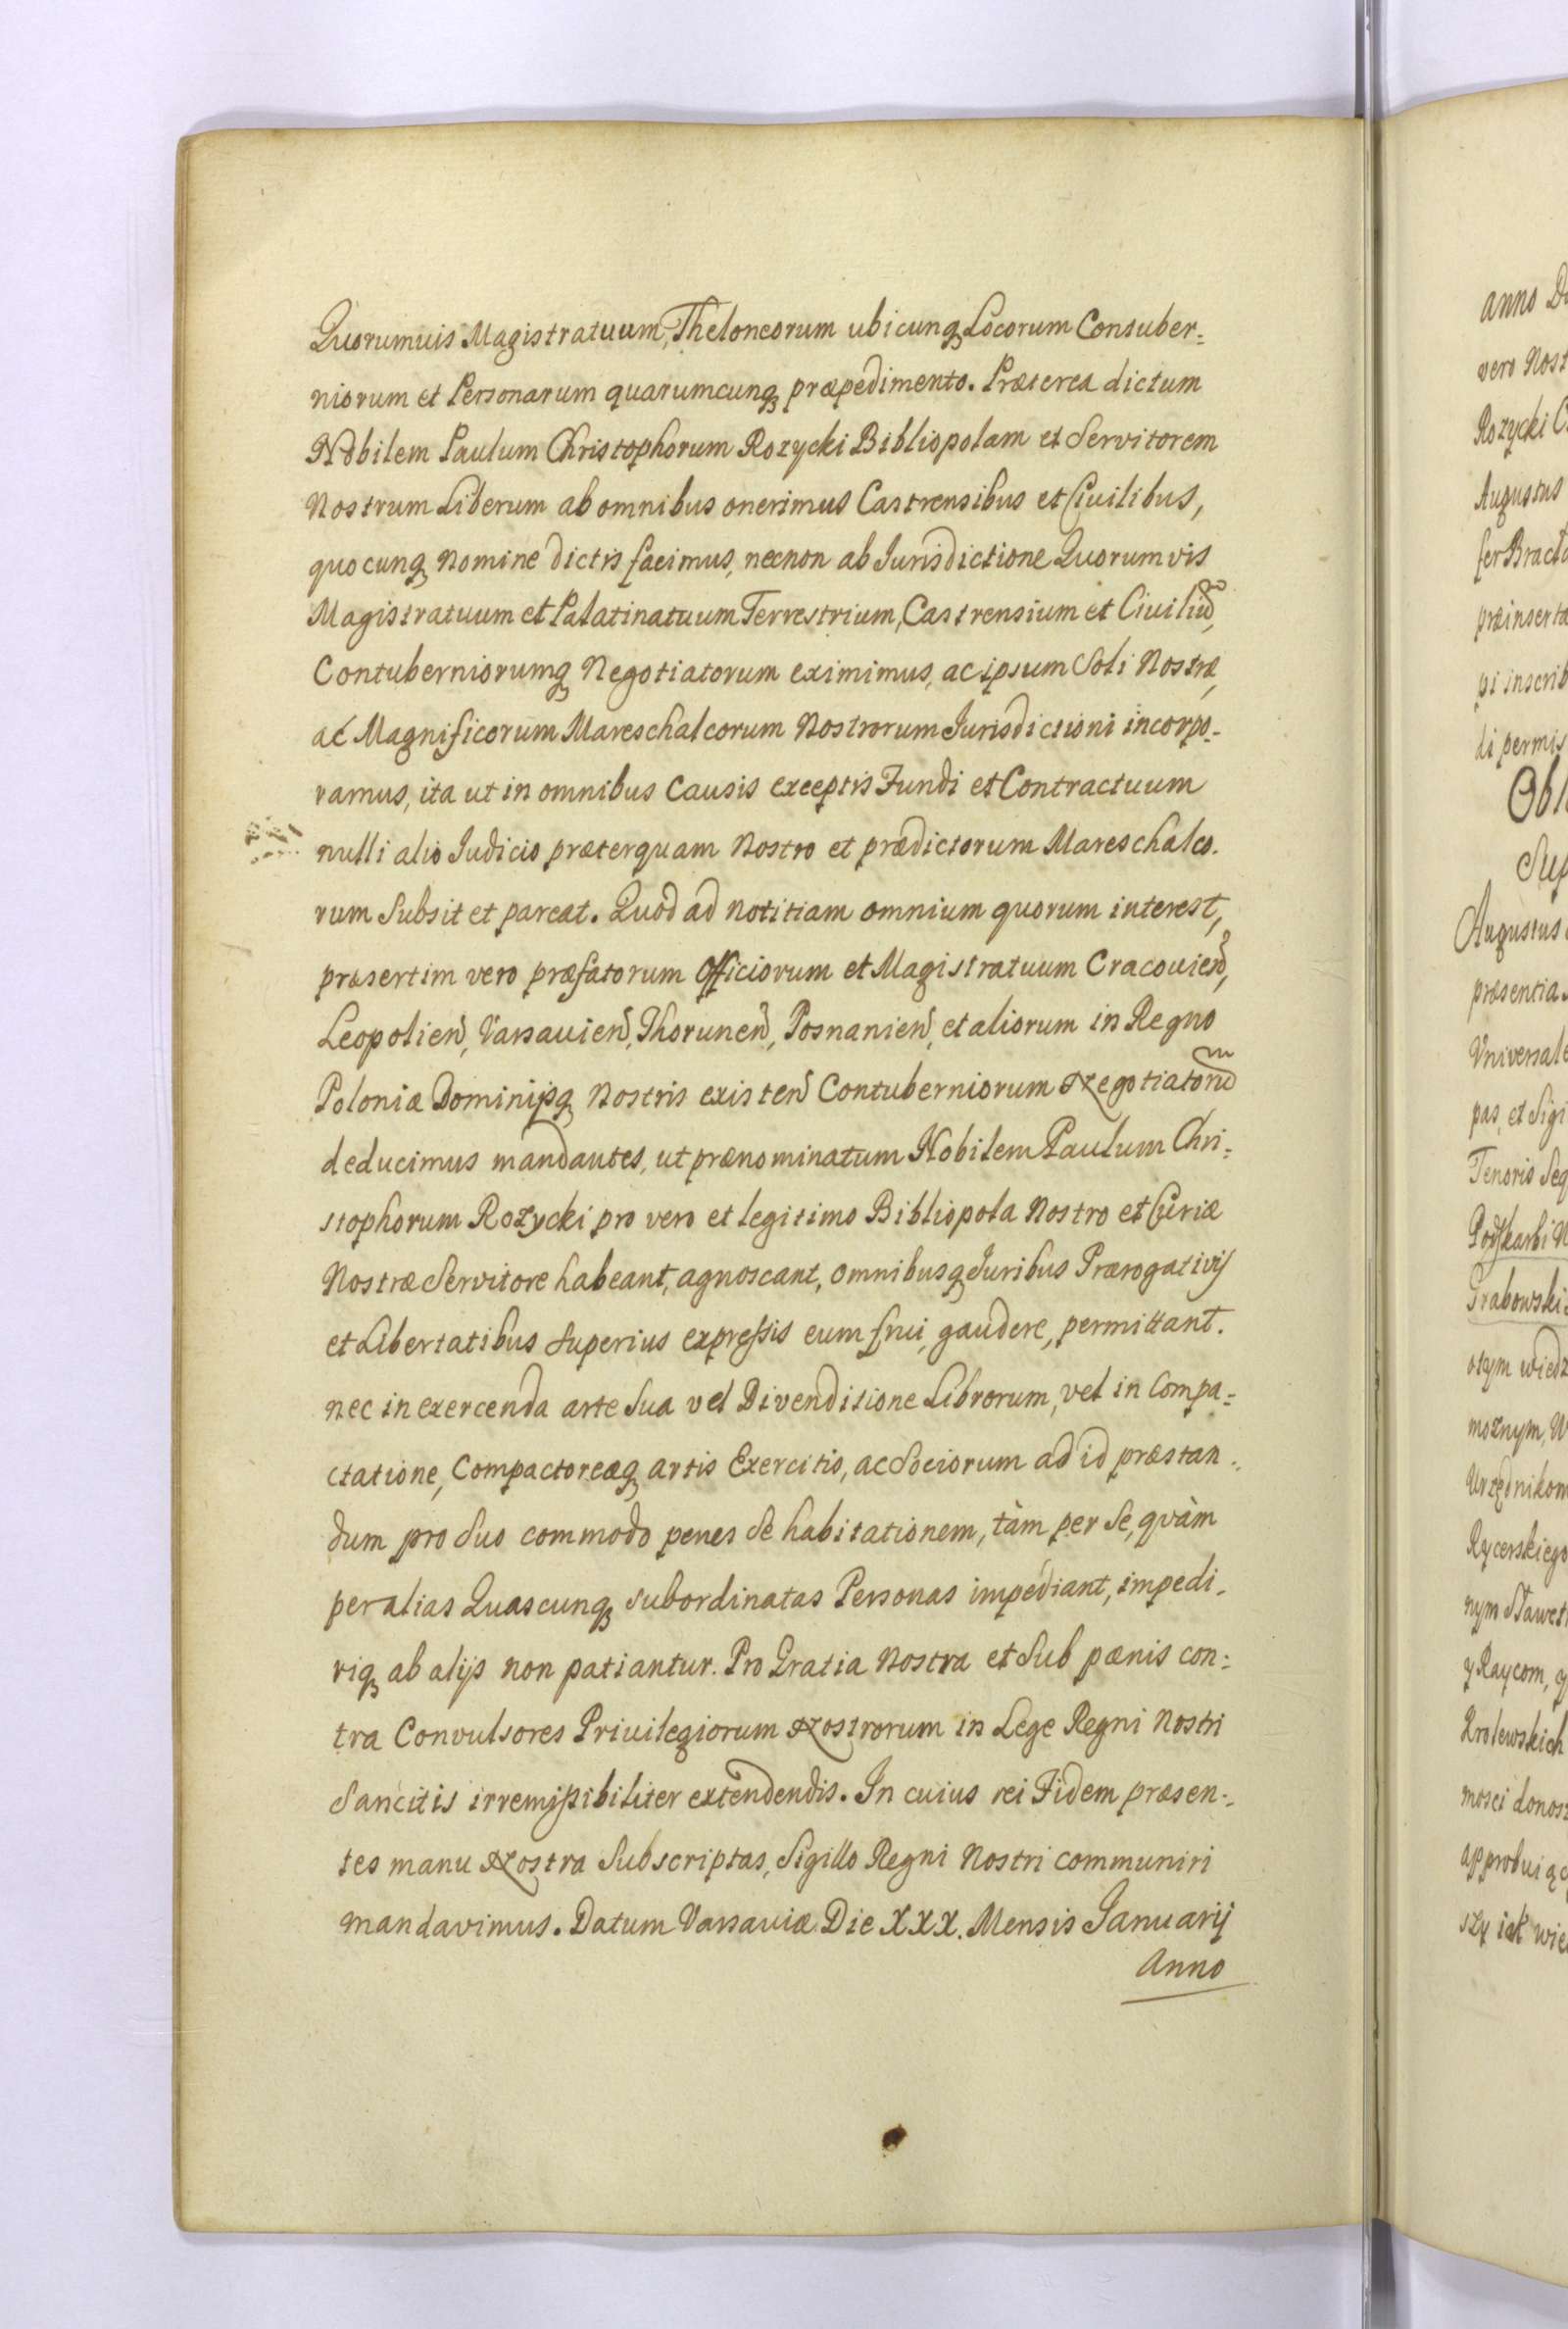 Quorumuis Magistratuum, Theloneorum ubicunq Locorum Contuber=
niorum et Personarum quarumcunq præpedimento. Præterea dictum
Nobilem Paulum Christophorum Rozycki Bibliopolam et Servitorem
Nostrum Liberum ab omnibus onerimus Castrensibus et Civilibus,
quocunq Nomine dictis facimus, necnon ab Jurisdictione Quorumvis
Magistratuum et Palatinatuum Terrestrium, Castrensium et Civiliũ,
Contuberniorumq Negotiatorum eximimus, ac ipsum Soli Nostræ,
ac Magnificorum Mareschalcorum Nostrorum Jurisdictioni incorpo=
ramus, ita ut in omnibus Causis exceptis Fundi et Contractuum
nulli alio Judicio præterquam Nostro et prædictorum Mareschalco.
rum Subsit et pareat. Quod ad notitiam omnium quorum interest,
præsertim vero præfatorum Officiorum et Magistratuum Cracovien,
Leopolien, Varsavien, Thorunen, Posnanien, et aliorum in Regno
Poloniæ Dominijsq Nostris existen Contuberniorum Negotiatorũ
deducimus mandantes, ut prænominatum Nobilem Paulum Chri=
stophorum Rozycki pro vero et legitimo Bibliopola Nostro et Curiæ
Nostræ Servitore habeant, agnoscant, omnibusq Juribus Prærogativis
et Libertatibus Superius expressis eum frui, gaudere, permittant.
nec in exercenda arte Sua vel Divenditione Librorum, vel in Compa=
ctatione, Compactoreæq artis Exercitio, ac Sociorum ad id præstan=
dum pro Suo commodo penes Se habitationem, tàm per Se, quàm
per alias Quascunq subordinatas Personas impediant, impedi=
riq ab alijs non patiantur. Pro Gratia Nostra et Sub pænis con=
tra Convulsores Privilegiorum Nostrorum in Lege Regni Nostri
Sancitis irremissibiliter extendendis. In cuius rei Fidem præsen=
tes manu Nostra Subscriptas, Sigillo Regni Nostri communiri
mandavimus. Datum Varsaviæ Die XXX. Mensis Januarij
Anno
anno
vero Nost
Rozycki
Augustus
præinsertæ
di permis
Augustus
præsentia
Universale
pas, et Sigi
Tenoris Seq
Podskarbi
Grabowski
otym wiedz
moznym, W
Urzędnikom
Rycerskiego
nym Sławet
y Raycom, y
Krolewskich
mosci donosz
szy iak wie